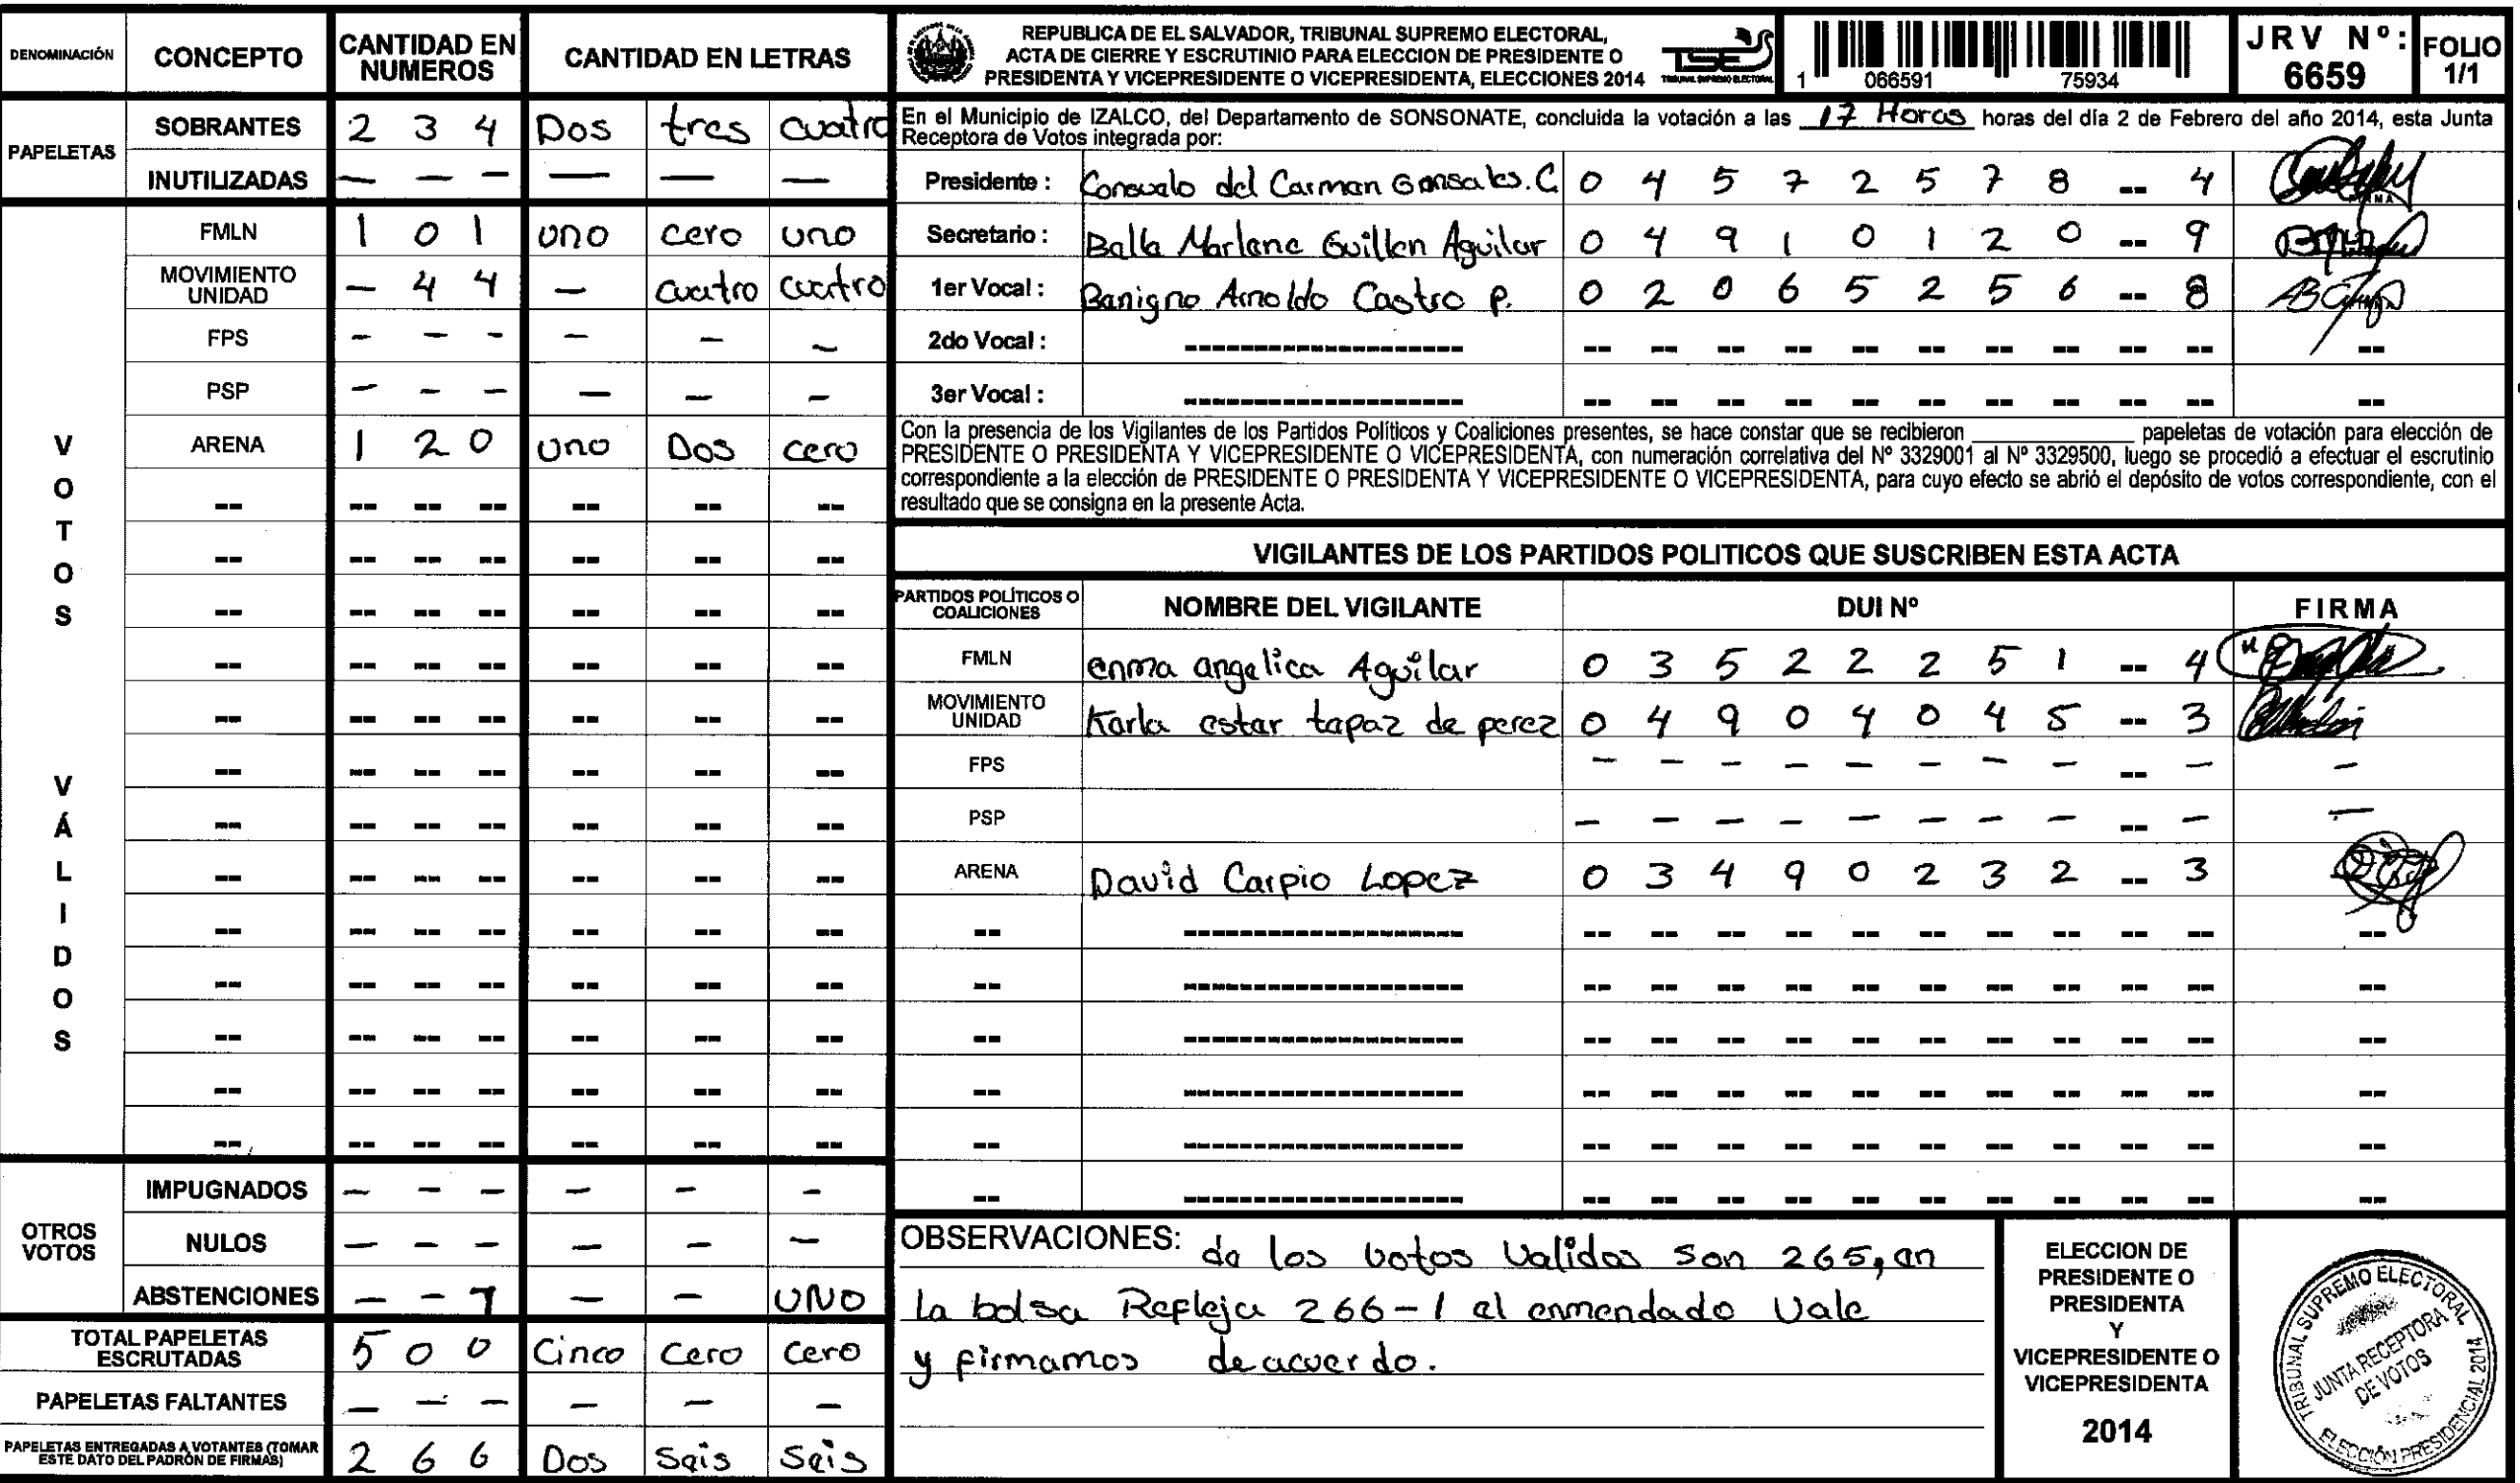 DENOMINACIÓN CONCEPTO CANTIDAD EN NUMEROS CANTIDAD EN LETRAS
PAPELETAS
SOBRANTES 2 3 4 Dos tres cuatro
INUTILIZADAS — — — — — —
VOTOS VÁLIDOS
FMLN 1 0 1 uno cero uno
MOVIMIENTO UNIDAD — 4 4 — cuatro cuatro
FPS — — — — — —
PSP — — — — — —
ARENA 1 2 0 uno Dos cero
-- -- -- -- -- -- --
-- -- -- -- -- -- --
-- -- -- -- -- -- --
-- -- -- -- -- -- --
-- -- -- -- -- -- --
-- -- -- -- -- -- --
-- -- -- -- -- -- --
-- -- -- -- -- -- --
-- -- -- -- -- -- --
-- -- -- -- -- -- --
-- -- -- -- -- -- --
-- -- -- -- -- -- --
-- -- -- -- -- -- --
OTROS VOTOS
IMPUGNADOS — — — — — —
NULOS — — — — — —
ABSTENCIONES — — 1 — — UNO
TOTAL PAPELETAS ESCRUTADAS 5 0 0 Cinco Cero Cero
PAPELETAS FALTANTES — — — — — —
PAPELETAS ENTREGADAS A VOTANTES (TOMAR ESTE DATO DEL PADRÓN DE FIRMAS) 2 6 6 Dos Seis Seis
REPUBLICA DE EL SALVADOR, TRIBUNAL SUPREMO ELECTORAL,
ACTA DE CIERRE Y ESCRUTINIO PARA ELECCION DE PRESIDENTE O
PRESIDENTA Y VICEPRESIDENTE O VICEPRESIDENTA, ELECCIONES 2014
TRIBUNAL SUPREMO ELECTORAL
1 066591 75934
JRV Nº: 6659
FOLIO 1/1
En el Municipio de IZALCO, del Departamento de SONSONATE, concluida la votación a las 17 Horas horas del día 2 de Febrero del año 2014, esta Junta
Receptora de Votos integrada por:
Presidente : Consualo del Carman Gonsales. C 0 4 5 7 2 5 7 8 -- 4
Secretario : Balla Marlene Guillen Aguilar 0 4 9 1 0 1 2 0 -- 9
1er Vocal : Banigno Arnoldo Castro P. 0 2 0 6 5 2 5 6 -- 8
2do Vocal : -------------------- -- -- -- -- -- -- -- -- -- -- --
3er Vocal : -------------------- -- -- -- -- -- -- -- -- -- -- --
Con la presencia de los Vigilantes de los Partidos Políticos y Coaliciones presentes, se hace constar que se recibieron ____________ papeletas de votación para elección de
PRESIDENTE O PRESIDENTA Y VICEPRESIDENTE O VICEPRESIDENTA, con numeración correlativa del Nº 3329001 al Nº 3329500, luego se procedió a efectuar el escrutinio
correspondiente a la elección de PRESIDENTE O PRESIDENTA Y VICEPRESIDENTE O VICEPRESIDENTA, para cuyo efecto se abrió el depósito de votos correspondiente, con el
resultado que se consigna en la presente Acta.
VIGILANTES DE LOS PARTIDOS POLITICOS QUE SUSCRIBEN ESTA ACTA
PARTIDOS POLÍTICOS O COALICIONES NOMBRE DEL VIGILANTE DUI Nº FIRMA
FMLN enma angelica Aguilar 0 3 5 2 2 2 5 1 -- 4
MOVIMIENTO UNIDAD Karla estar tapaz de perez 0 4 9 0 4 0 4 5 -- 3
FPS — — — — — — — — -- — —
PSP — — — — — — — — -- — —
ARENA David Carpio Lopez 0 3 4 9 0 2 3 2 -- 3
-- -------------------- -- -- -- -- -- -- -- -- -- -- --
-- -------------------- -- -- -- -- -- -- -- -- -- -- --
-- -------------------- -- -- -- -- -- -- -- -- -- -- --
-- -------------------- -- -- -- -- -- -- -- -- -- -- --
-- -------------------- -- -- -- -- -- -- -- -- -- -- --
-- -------------------- -- -- -- -- -- -- -- -- -- -- --
OBSERVACIONES: de los botos Validos son 265, en
La bolsa Refleja 266-1 el enmendado Vale
y firmamos de acuerdo.
ELECCION DE
PRESIDENTE O
PRESIDENTA
Y
VICEPRESIDENTE O
VICEPRESIDENTA
2014
TRIBUNAL SUPREMO ELECTORAL
JUNTA RECEPTORA
DE VOTOS
ELECCIÓN PRESIDENCIAL 2014